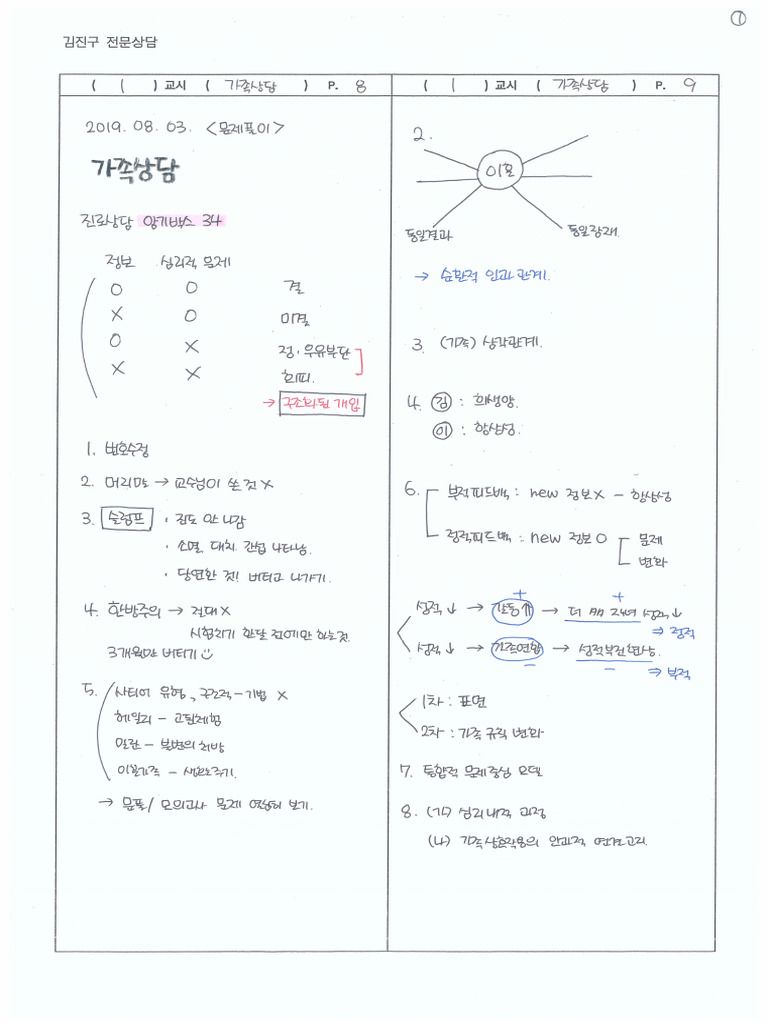 ①
김진구 전문상담
( 1 ) 교시 ( 가족상담 ) P. 8
2019. 08. 03. <문제풀이>
가족상담
진로상담 암기박스 34
정보 심리적 문제
O O 결
X O 미결
O X 정·우유부단
X X 회피.
→ 구조화된 개입
1. 번호수정
2. 머리말 → 교수님이 쓴 것 X
3. 슬럼프 · 진도 안 나감
· 소멸, 대치, 간섭 나타남.
· 당연한 것! 버티고 나가기.
4. 한방주의 → 절대 X
시험치기 한달 전에만 하는것
3개월만 버티기
5. 사티어 유형, 구조적-기법 X
헤일리 - 고된체험
밀란 - 불변의 처방
이혼가족 - 생활주기.
→ 문풀/ 모의고사 문제 연습해 보기.
( 1 ) 교시 ( 가족상담 ) P. 9
2.
이혼
동일결과 동일잠재.
→ 순환적 인과관계.
3. (가족) 삼각관계.
4. 김 : 희생양
이 : 항상성.
6. 부적피드백 : new 정보 X - 항상성
정적피드백 : new 정보 O 문제
변화
+ +
성적↓ → 갈등↑ → 더 많은 자녀 성적↓
⇒ 정적
성적↓ → 가족연합 → 성적부진현상.
- - ⇒ 부적
1차 : 표면
2차 : 가족 규칙 변화
7. 통합적 문제중심 모델
8. (가) 심리내적 과정
(나) 가족상호작용의 인과적 연결고리.